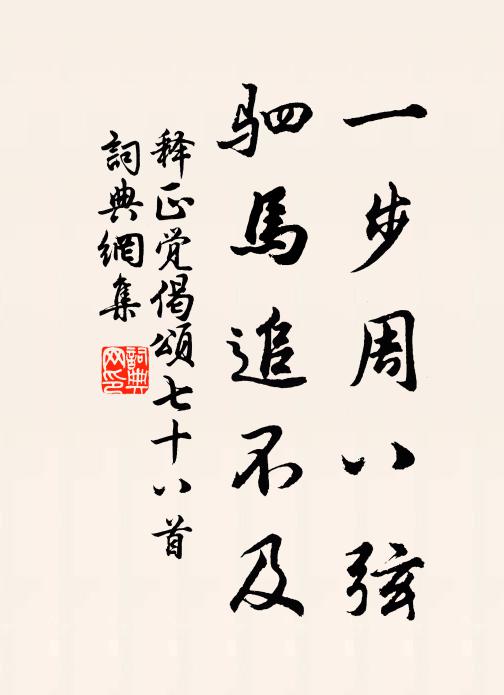 一步周八弦
驷馬追不及
释正觉偈頌七十八首
詞典網集
詞典网印